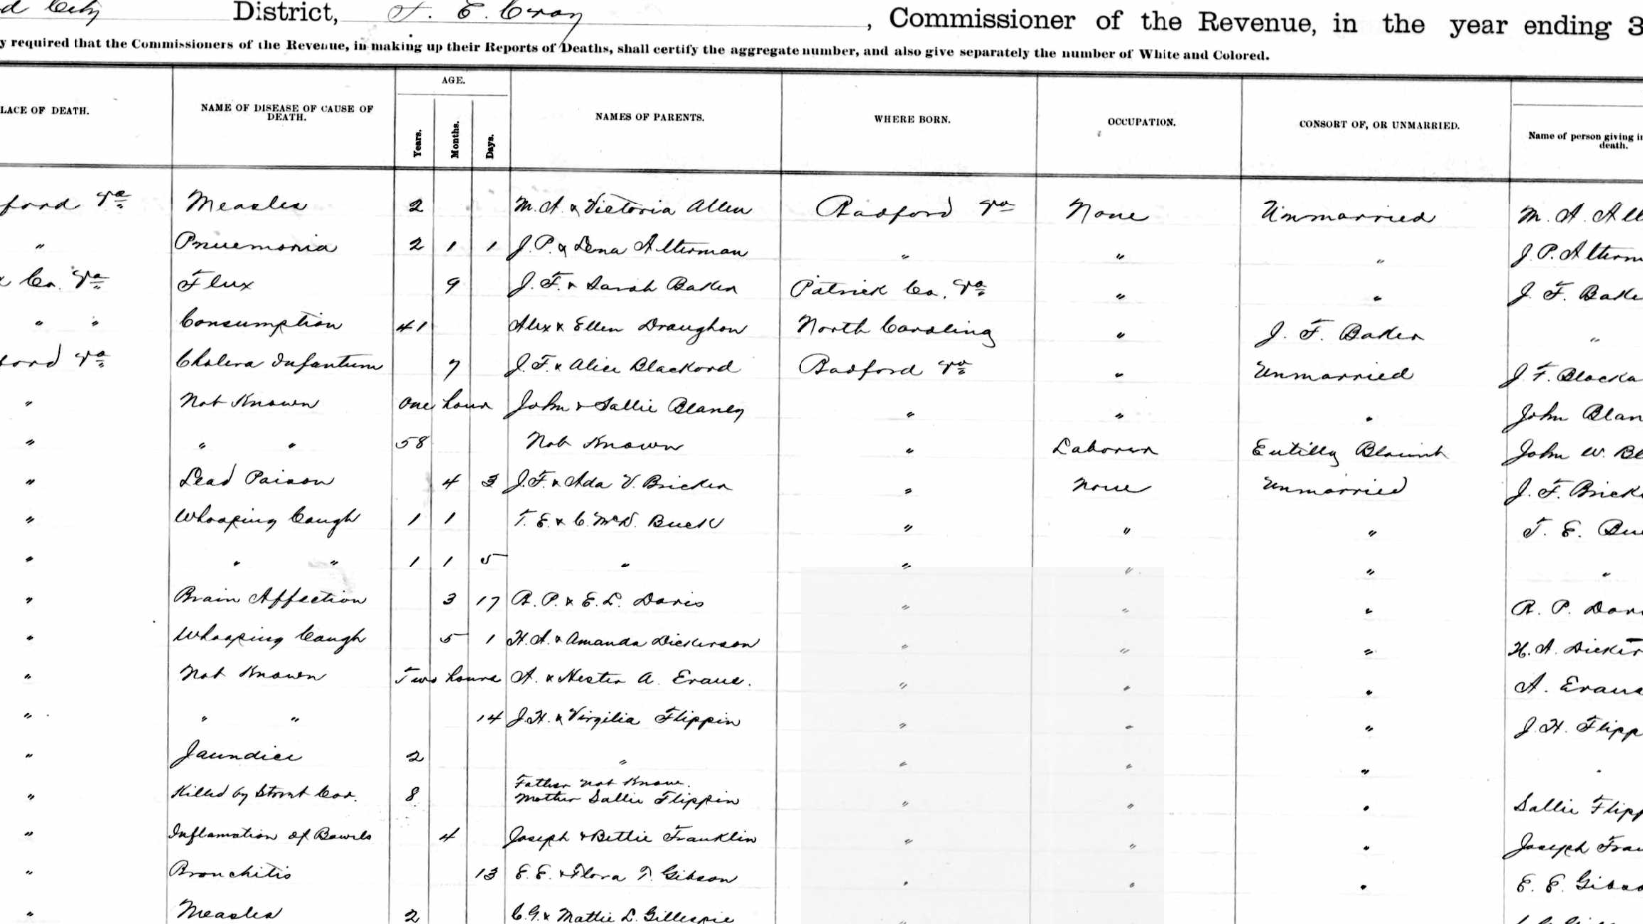 d City District, T. E. Cray , Commissioner of the Revenue, in the year ending 3
y required that the Commissioners of the Revenue, in making up their Reports of Deaths, shall certify the aggregate number, and also give separately the number of White and Colored.
LACE OF DEATH. NAME OF DISEASE OF CAUSE OF DEATH. AGE. Years. Months. Days. NAMES OF PARENTS. WHERE BORN. OCCUPATION. CONSORT OF, OR UNMARRIED. Name of person giving in death.
ford Va Measles 2 M. A & Victoria Allen Radford Va None Unmarried M. A. All
" Pnuemonia 2 1 1 J. P. & Lena Alterman " " " J. P. Alterm
Co. Va Flux 9 J. F. & Sarah Baker Patrick Co. Va " " J. F. Bake
" " Consumption 41 Alex & Ellen Draughon North Carolina " J. F. Baker "
ford Va Cholera Infantum 7 J. F. & Alice Blackard Radford Va " Unmarried J. F. Blacka
" Not Known One hour John & Sallie Blaney " " " John Blan
" " " 58 Not Known " Laborer Blount John W. Bl
" Lead Poison 4 3 J. F. & Ada V. Bricker " None Unmarried J. F. Brick
" Whooping Cough 1 1 T. E. & C. McD. Buck " " " T. E. Bu
" " " 1 1 5 " " " " "
" Brain Affection 3 17 R. P. & E. L. Davis " " " R. P. Dav
" Whooping Cough 5 1 H. A. & Amanda Dickerson " " " H. A. Dicker
" Not Known Two hours A. & Hester A. Evans. " " " A. Evans
" " " 14 J. H. & Virgilia Flippin " " " J. H. Flipp
" Jaundice 2 " " " " "
" Killed by Street Car. 8 Father not Know. Mother Sallie Flippin " " " Sallie Flipp
" Inflamation of Bowels 4 Joseph & Bettie Franklin " " " Joseph Fra
" Bronchitis 13 E. E. & Flora T. Gibson " " " E. E. Gibso
" Measles 2 C. G. & Mattie L. Gillespie